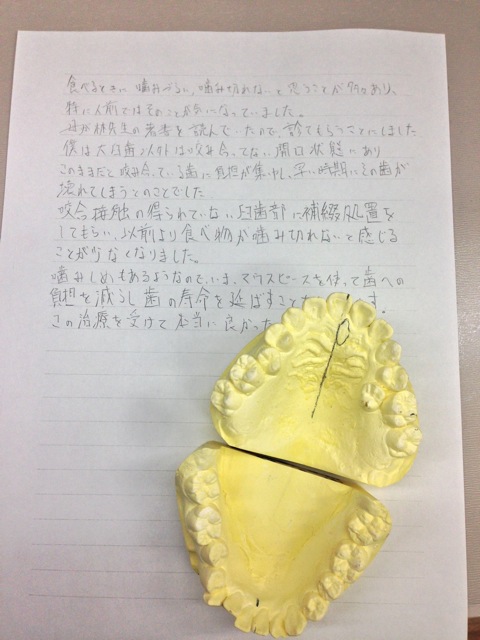 食べるときに噛みづらい、噛み切れないと思うことが多々あり、
特に人前ではそのことが気になっていました。
母が林先生の著書を読んでいたので、診てもらうことにしました
僕は大臼歯以外は咬み合ってない開口状態にあり
このままだと咬み合っている歯に負担が集中し、早い時期にその歯が
壊れてしまうとのことでした
咬合接触の得られていない臼歯部に補綴処置を
してもらい、以前より食べ物が噛み切れないと感じる
ことが少なくなりました。
噛みしめもあるようなので、いま、マウスピースを使って歯への
負担を減らし歯の寿命を延ばすこと す。
この治療を受けて本当に良かった